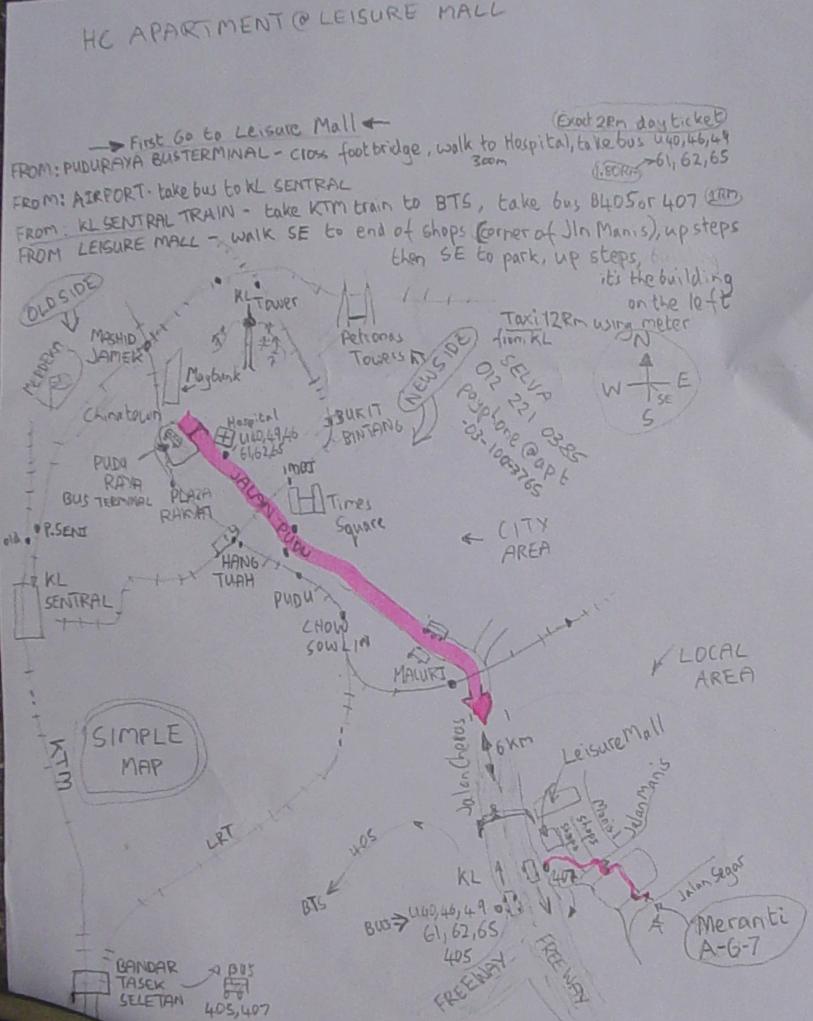 HC APARTMENT @ LEISURE MALL
→ First Go to Leisure Mall ←
Exact 2Rm day ticket
FROM: PUDURAYA BUSTERMINAL - cross footbridge, walk to Hospital, take bus U40,46,49
300m
1.80Rm → 61, 62, 65
FROM: AIRPORT - take bus to KL SENTRAL
FROM: KL SENTRAL TRAIN - take KTM train to BTS, take bus B405 or 407 1RM
FROM LEISURE MALL - WALK SE to end of shops (corner of Jln Manis), up steps
then SE to park, up steps,
it's the building
on the left
OLD SIDE
KL Tower
Petronas
Towers
Taxi 12Rm using meter
from KL
N
W E
SE
S
MASHID
JAMEK
MERDEKA
Maybank
NEW SIDE
SELVA
012 221 0385
payphone @ apt
-03-1003765
Chinatown
Hospital
U40,49,46
61,62,65
BUKIT
BINTANG
PUDU
RAYA
BUS TERMINAL
PLAZA
RAKYAT
JALAN PUDU
IMBI
Times
Square
old
P.SENI
← CITY
AREA
HANG
TUAH
KL
SENTRAL
PUDU
CHOW
SOW LIN
MALURI
LOCAL
AREA
SIMPLE
MAP
KTM
Jalan Cheras
6 KM
Leisure Mall
shops
shops
Manis
Jalan Manis
LRT
405
BTS
KL
407
Jalan Segar
BUS → U40,46,49
61, 62, 65
405
Meranti
A-G-7
FREEWAY
FREEWAY
BANDAR
TASEK
SELETAN
BUS
405,407